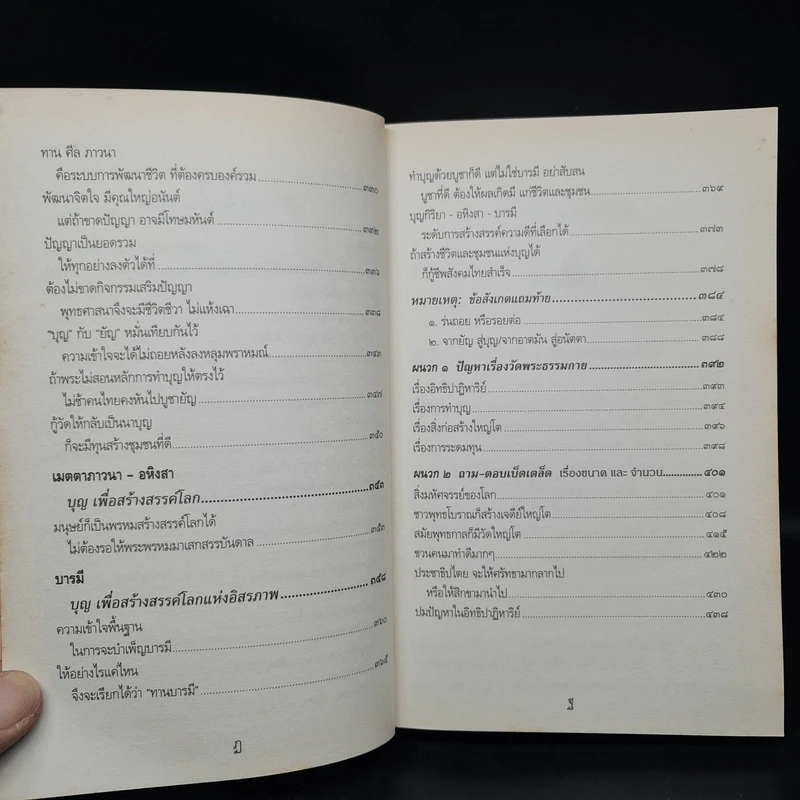 ทาน ศีล ภาวนา
คือระบบการพัฒนาชีวิต ที่ต้องครบองค์รวม ๓๓๐
พัฒนาจิตใจ มีคุณใหญ่อนันต์
แต่ถ้าขาดปัญญา อาจมีโทษมหันต์ ๓๓๒
ปัญญาเป็นยอดรวม
ให้ทุกอย่างลงตัวได้ที่ ๓๓๖
ต้องไม่ขาดกิจกรรมเสริมปัญญา
พุทธศาสนาจึงจะมีชีวิตชีวา ไม่แห้งเฉา ๓๓๘
"บุญ" กับ "ยัญ" หมั่นเทียบกันไว้
ความเข้าใจจะได้ไม่ถอยหลังลงหลุมพราหมณ์ ๓๔๓
ถ้าพระไม่สอนหลักการทำบุญให้ตรงไว้
ไม่ช้าคนไทยคงหันไปบูชายัญ ๓๔๗
กู้วัดให้กลับเป็นนาบุญ
ก็จะมีทุนสร้างชุมชนที่ดี ๓๕๐
เมตตาภาวนา – อหิงสา
บุญ เพื่อสร้างสรรค์โลก ๓๕๓
มนุษย์ก็เป็นพรหมสร้างสรรค์โลกได้
ไม่ต้องรอให้พระพรหมมาเสกสรรบันดาล ๓๕๓
บารมี
บุญ เพื่อสร้างสรรค์โลกแห่งอิสรภาพ ๓๕๘
ความเข้าใจพื้นฐาน
ในการจะบำเพ็ญบารมี ๓๖๐
ให้อย่างไรแค่ไหน
จึงจะเรียกได้ว่า "ทานบารมี" ๓๖๕
ฏ
ทำบุญด้วยบูชาก็ดี แต่ไม่ใช่บารมี อย่าสับสน
บูชาที่ดี ต้องให้ผลเกิดมี แก่ชีวิตและชุมชน ๓๖๙
บุญกิริยา - อหิงสา - บารมี
ระดับการสร้างสรรค์ความดีที่เลือกได้ ๓๗๓
ถ้าสร้างชีวิตและชุมชนแห่งบุญได้
ก็กู้ชีพสังคมไทยสำเร็จ ๓๗๘
หมายเหตุ: ข้อสังเกตแถมท้าย ๓๘๔
๑. ร่นถอย หรือรอยต่อ ๓๘๔
๒. จากยัญ สู่บุญ/จากอาตมัน สู่อนัตตา ๓๘๘
ผนวก ๑ ปัญหาเรื่องวัดพระธรรมกาย ๓๙๒
เรื่องอิทธิปาฏิหาริย์ ๓๙๓
เรื่องการทำบุญ ๓๙๔
เรื่องสิ่งก่อสร้างใหญ่โต ๓๙๖
เรื่องการระดมทุน ๓๙๘
ผนวก ๒ ถาม-ตอบเบ็ดเตล็ด เรื่องขนาด และ จำนวน ๔๐๑
สิ่งมหัศจรรย์ของโลก ๔๐๑
ชาวพุทธโบราณก็สร้างเจดีย์ใหญ่โต ๔๐๘
สมัยพุทธกาลก็มีวัดใหญ่โต ๔๑๕
ชวนคนมาทำดีมากๆ ๔๒๒
ประชาธิปไตย จะให้ศรัทธามาก​ลากไป
หรือให้สิกขามานำไป ๔๓๐
ปมปัญหาในอิทธิปาฏิหาริย์ ๔๓๘
ฐ